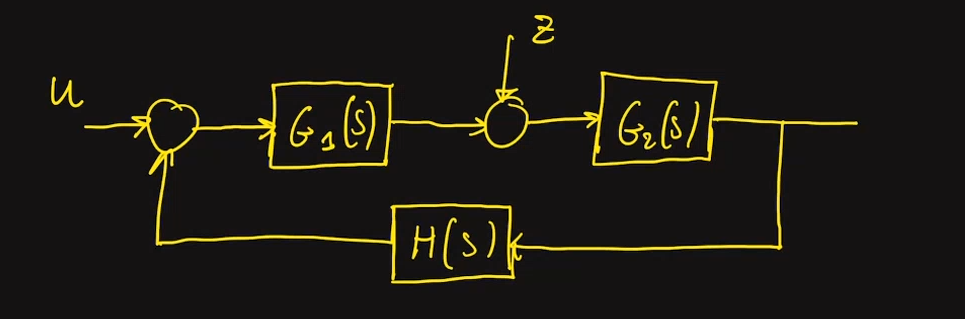 z
u
G₁(s)
G₂(s)
H(s)